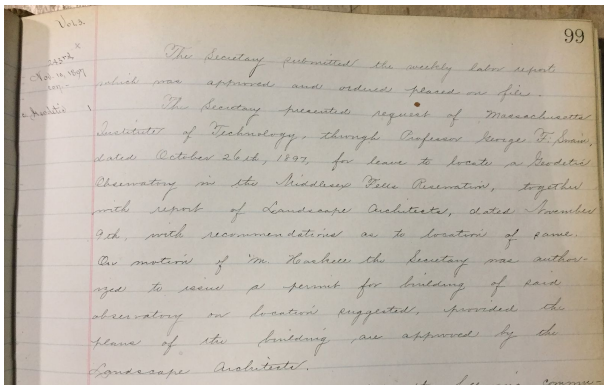 99
Vol. 3.
243rd
Nov. 10, 1897
The Secretary submitted the weekly labor report
which was approved and ordered placed on file.
The Secretary presented request of Massachusetts
Institute of Technology, through Professor George F. Swain,
dated October 26th, 1897, for leave to locate a Geodetic
Observatory in the Middlesex Fells Reservation, together
with report of Landscape Architects, dated November
9th, with recommendations as to location of same.
On motion of Mr. Haskell the Secretary was author-
ized to issue a permit for building of said
observatory on location suggested, provided the
plans of the building are approved by the
Landscape Architects.